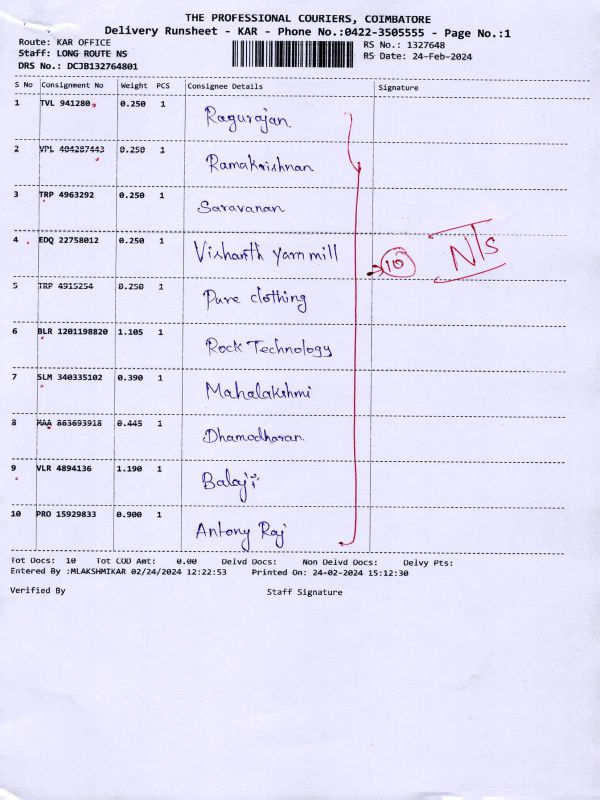 THE PROFESSIONAL COURIERS, COIMBATORE
Delivery Runsheet - KAR - Phone No.:0422-3505555 - Page No.:1
Route: KAR OFFICE
RS No.: 1327648
Staff: LONG ROUTE NS
RS Date: 24-Feb-2024
DRS No.: DCJB132764801
S No Consignment No Weight PCS Consignee Details Signature
1 TVL 941280 0.250 1 Ragurajan
2 VPL 404287443 0.250 1 Ramakrishnan
3 TRP 4963292 0.250 1 Saravanan
4 EDQ 22758012 0.250 1 Vishanth yarn mill
10 N/S
5 TRP 4915254 0.250 1 Pure clothing
6 BLR 1201198820 1.105 1 Rock Technology
7 SLM 340335102 0.390 1 Mahalakshmi
8 MAA 863693918 0.445 1 Dhamodharan
9 VLR 4894136 1.190 1 Balaji
10 PRO 15929833 0.900 1 Antony Raj
Tot Docs: 10 Tot COD Amt: 0.00 Delvd Docs: Non Delvd Docs: Delvy Pts:
Entered By :MLAKSHMIKAR 02/24/2024 12:22:53 Printed On: 24-02-2024 15:12:30
Verified By Staff Signature